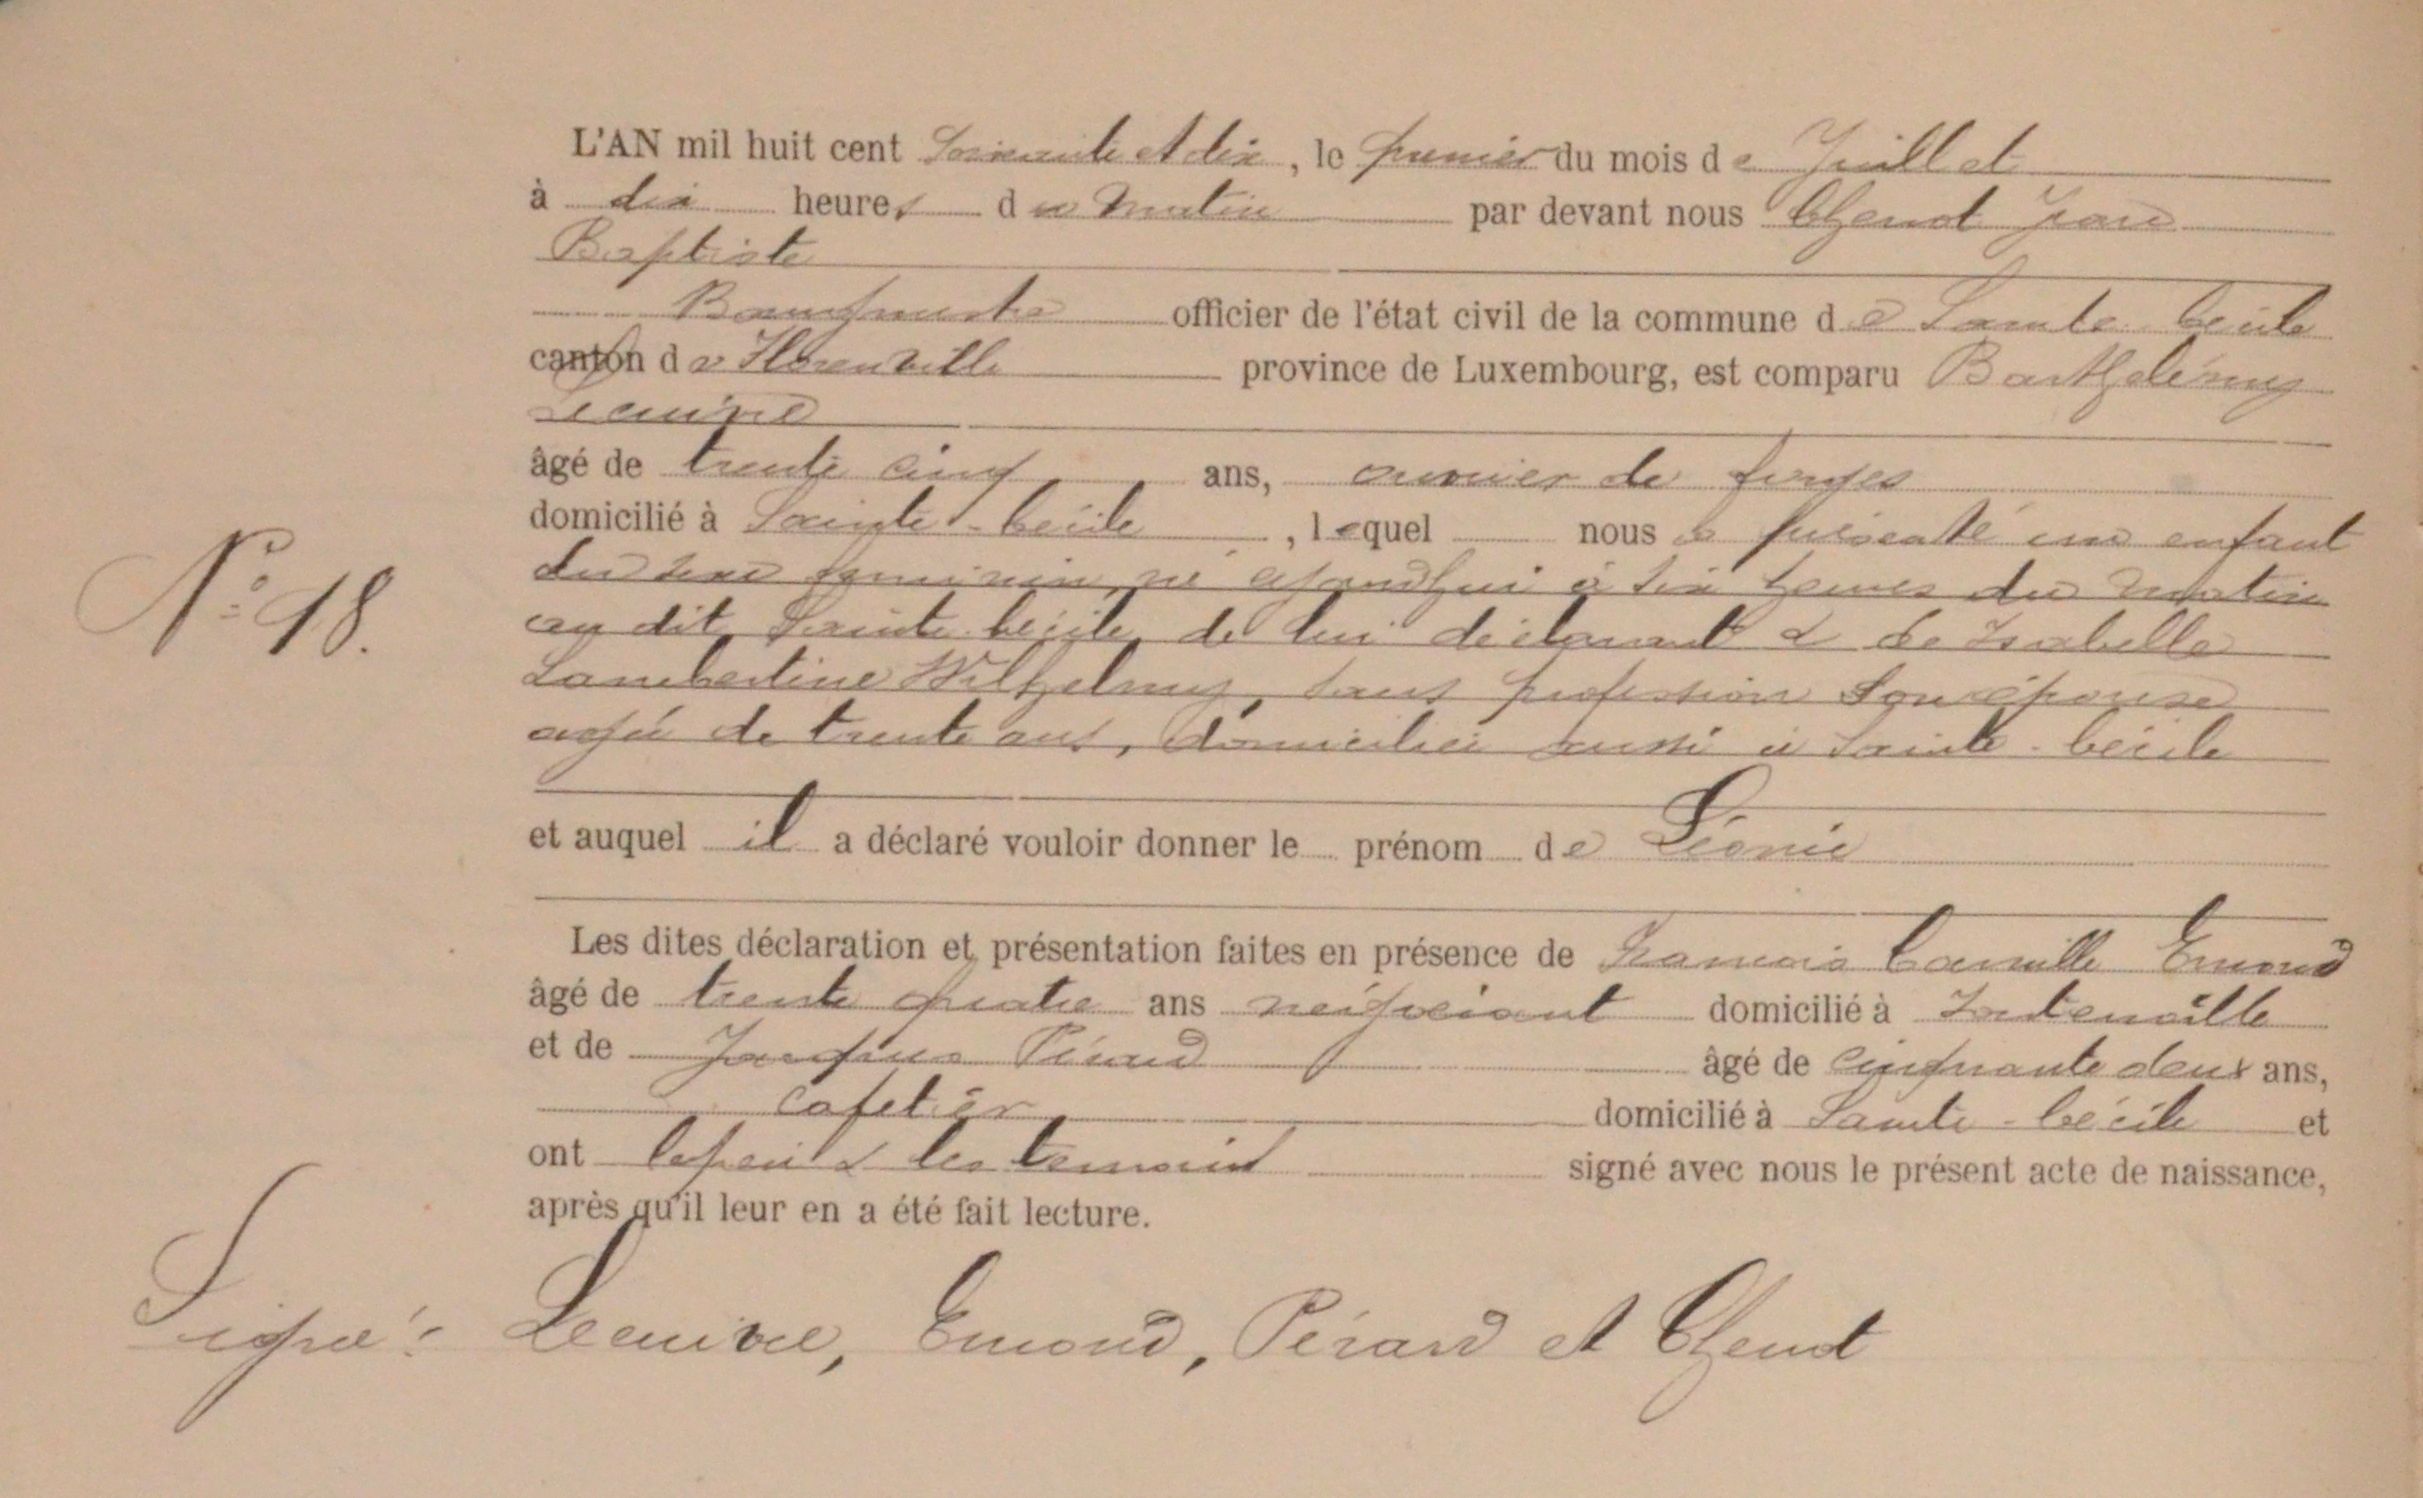 L'AN mil huit cent Soixante et dix, le premier du mois de Juillet
à dix heures du Matin par devant nous Thenot Jean
Baptiste
Bourgmestre officier de l'état civil de la commune de Sainte Cécile
canton de Florenville province de Luxembourg, est comparu Barthélémy
Lemire
âgé de trente cinq ans, ouvrier de forges
domicilié à Sainte-Cécile, lequel nous a présenté un enfant
du sexe feminin, né ajourdhui à six heures du Matin
au dit Sainte Cécile, de lui déclarant & de Isabelle
Lambertine Wilhelmy, sans profession Son épouse
agée de trente ans, domiciliée aussi à Sainte-Cécile
et auquel il a déclaré vouloir donner le prénom de Léonie
Les dites déclaration et présentation faites en présence de Francois Camille Emond
âgé de trente quatre ans négociant domicilié à
et de Jacques Pérard âgé de cinquante deux ans,
cafetier domicilié à Sainte-Cécile et
ont le père & les temoins signé avec nous le présent acte de naissance,
après qu'il leur en a été fait lecture.
N° 18.
Signé: Emond, Pérard et Thenot